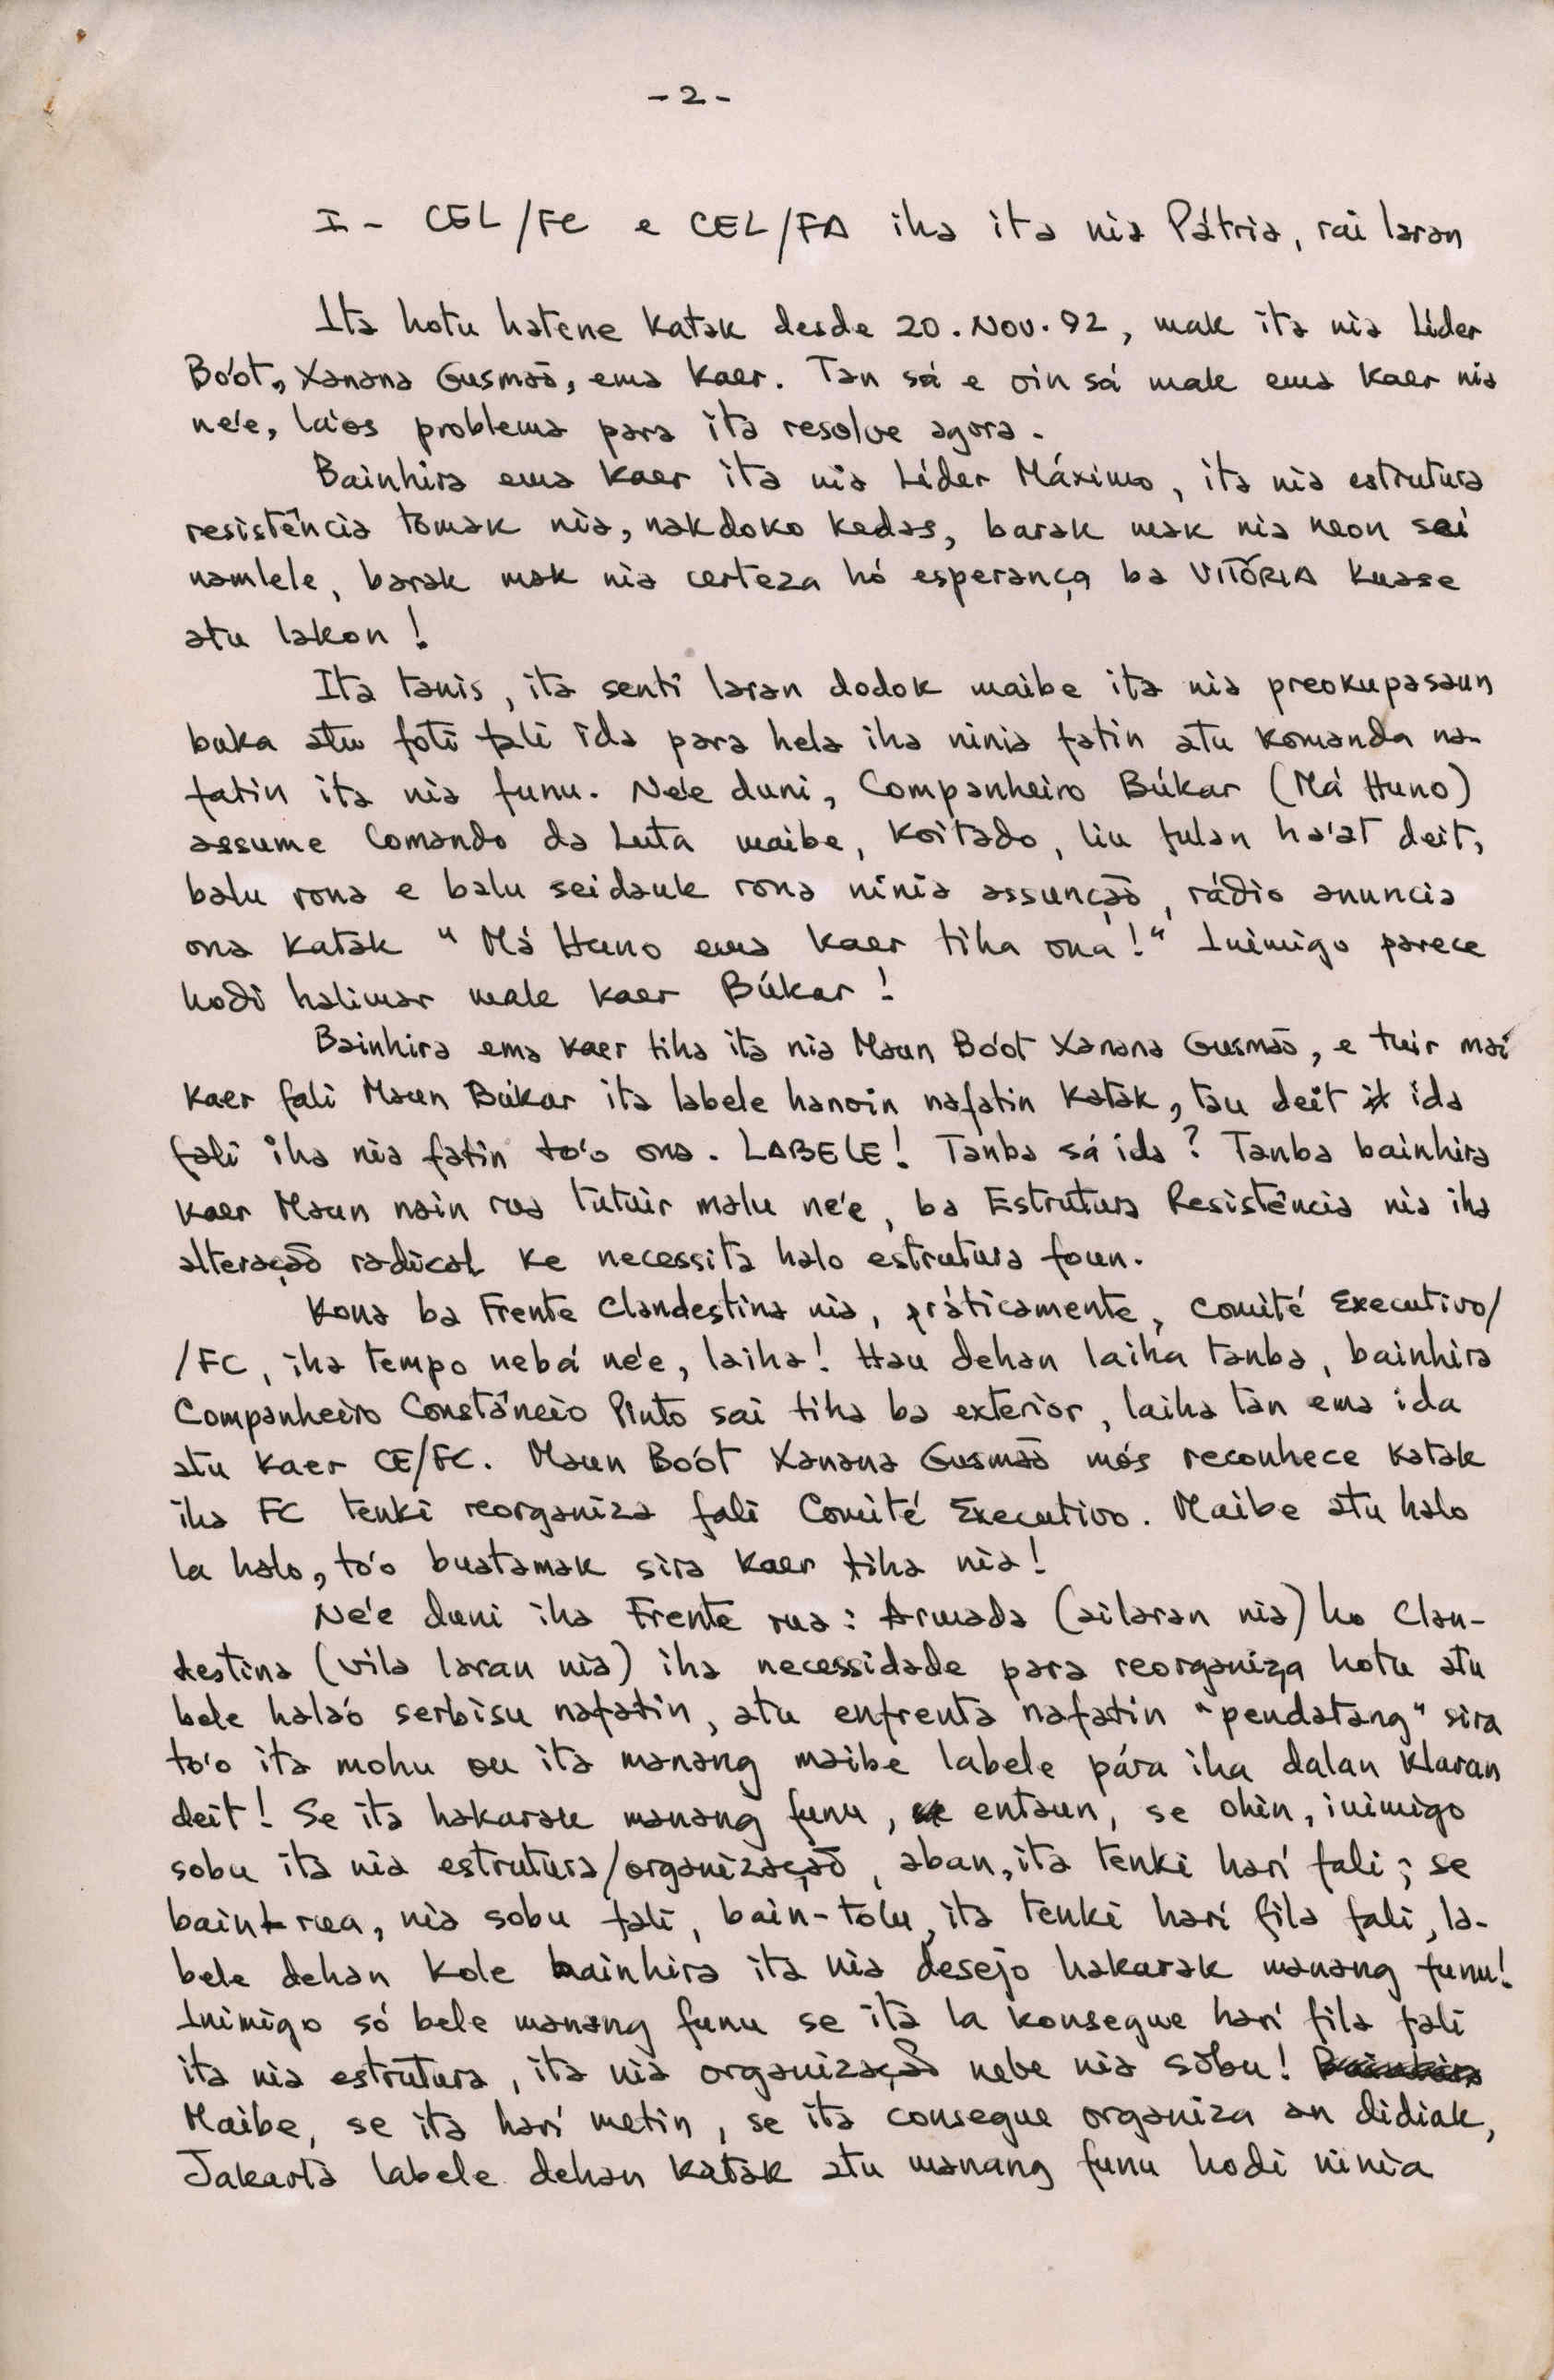 - 2 -
I - CEL/FC e CEL/FA iha ita nia Pátria, rai laran
Ita hotu hatene katak desde 20.Nov.92, mak ita nia Líder
Bo'ot, Xanana Gusmão, ema kaer. Tan sá e oin sá mak ema kaer nia
ne'e, la'os problema para ita resolve agora.
Bainhira ema kaer ita nia Líder Máximo, ita nia estrutura
resistência tomak nia, nakdoko kedas, barak mak nia neon sei
namlele, barak mak nia certeza hó esperança ba VITÓRIA kuase
atu lakon!
Ita tanis, ita senti laran dodok maibe ita nia preokupasaun
buka atu foti fali ida para hela iha ninia fatin atu komanda na-
fatin ita nia funu. Ne'e duni, Companheiro Búkar (Má Huno)
assume Comando da Luta maibe, koitado, liu fulan ha'at deit,
balu rona e balu seidauk rona ninia assunção, rádio anuncia
ona katak "Má Huno ema kaer tiha ona!" Inimigo parece
hodi halimar mak kaer Búkar!
Bainhira ema kaer tiha ita nia Maun Bo'ot Xanana Gusmão, e tuir mai
kaer fali Maun Búkar ita labele hanoin nafatin katak, tau deit ida
fali iha nia fatin to'o ona. LABELE! Tanba sá ida? Tanba bainhira
kaer Maun nain rua tutuir malu ne'e, ba Estrutura Resistência nia iha
alteração radical ke necessita halo estrutura foun.
Kona ba Frente Clandestina nia, práticamente, Comité Executivo/
/FC, iha tempo nebá ne'e, laiha! Hau dehan laiha tanba, bainhira
Companheiro Constâncio Pinto sai tiha ba exterior, laiha tan ema ida
atu kaer CE/FC. Maun Bo'ot Xanana Gusmão mós reconhece katak
iha FC tenki reorganiza fali Comité Executivo. Maibe atu halo
la halo, to'o buatamak sira kaer tiha nia!
Ne'e duni iha Frente rua: Armada (ailaran nia) ho Clan-
destina (vila laran nia) iha necessidade para reorganiza hotu atu
bele hala'o serbisu nafatin, atu enfrenta nafatin "pendatang" sira
to'o ita mohu ou ita manang maibe labele pára iha dalan klaran
deit! Se ita hakarak manang funu, entaun, se ohin, inimigo
sobu ita nia estrutura/organização, aban, ita tenki hari fali; se
bain-rua, nia sobu fali, bain-tolu, ita tenki hari fila fali, la-
bele dehan kole bainhira ita nia desejo hakarak manang funu!
Inimigo só bele manang funu se ita la konsegue hari fila fali
ita nia estrutura, ita nia organização nebe nia sobu!
Maibe, se ita hari metin, se ita consegue organiza an didiak,
Jakarta labele dehan katak atu manang funu hodi ninia